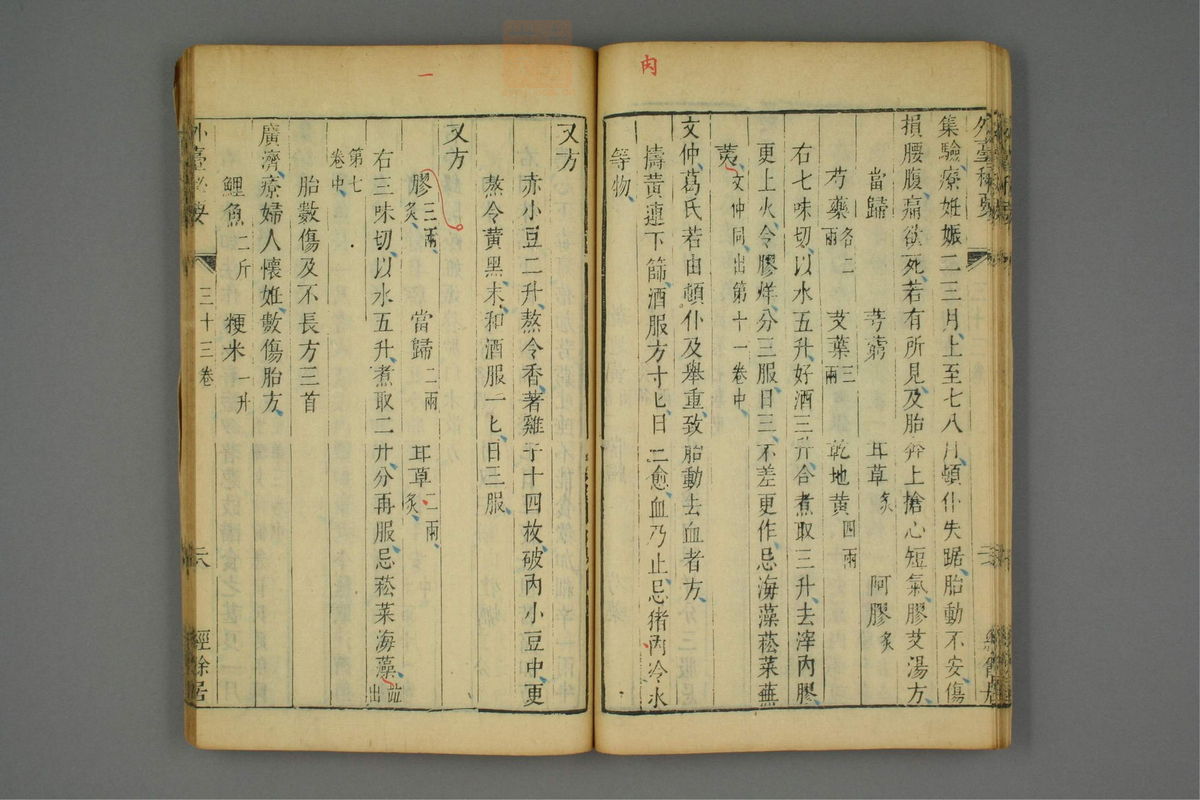 肉
外臺秘要
集驗療妊娠二三月上至七八月頓仆失踞胎動不安傷
損腰腹痛欲死若有所見及胎奔上搶心短氣膠艾湯方
當歸 芎藭 甘草炙 阿膠炙
芍藥各二兩 艾葉三兩 乾地黃四兩
右七味切以水五升好酒三升合煮取三升去滓內膠
更上火令膠烊分三服日三不差更作忌海藻菘菜蕪
荑文仲同出第十一卷中
文仲葛氏若由頓仆及舉重致胎動去血者方
擣黃連下篩酒服方寸匕日三愈血乃止忌猪肉冷水
等物
一
又方
赤小豆二升熬令香著雞子十四枚破內小豆中更
熬令黃黑末和酒服一匕日三服
又方
膠三兩炙 當歸二兩 甘草二兩炙
右三味切以水五升煮取二升分再服忌菘菜海藻並出
第七卷中
胎數傷及不長方三首
廣濟療婦人懷妊數傷胎方
鯉魚二斤 粳米一升
外臺秘要 三十三卷 二八 經餘居